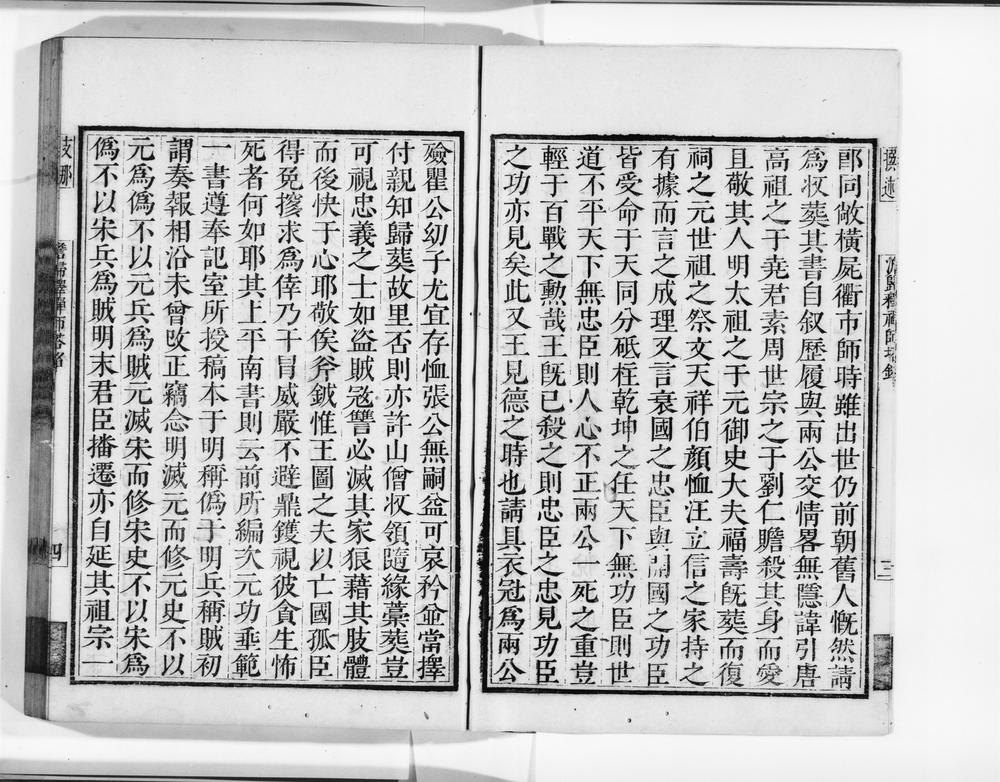 即同敞橫屍衢市師時雖出世仍前朝舊人慨然請
爲收葬其書自叙歷履與兩公交情畧無隱諱引唐
高祖之于堯君素周世宗之于劉仁贍殺其身而愛
且敬其人明太祖之于元御史大夫福壽旣葬而復
祠之元世祖之祭文天祥伯顔恤汪立信之家持之
有據而言之成理又言衰國之忠臣與開國之功臣
皆受命于天同分砥柱乾坤之任天下無功臣則世
道不平天下無忠臣則人心不正兩公一死之重豈
輕于百戰之勲哉王旣已殺之則忠臣之忠見功臣
之功亦見矣此又王見德之時也請具衣冠爲兩公
殮瞿公幼子尤宜存恤張公無嗣益可哀矜並當擇
付親知歸葬故里否則亦許山僧收領隨緣藁葬豈
可視忠義之士如盜賊寇讐必滅其家狼藉其肢體
而後快于心耶敬俟斧鉞惟王圖之夫以亡國孤臣
得免搜求爲倖乃干冒威嚴不避鼎鑊視彼貪生怖
死者何如耶其上平南書則云前所編次元功垂範
一書遵奉記室所授稿本于明稱僞于明兵稱賊初
謂奏報相沿未曾改正竊念明滅元而修元史不以
元爲僞不以元兵爲賊元滅宋而修宋史不以宋爲
僞不以宋兵爲賊明末君臣播遷亦自延其祖宗一
三
四